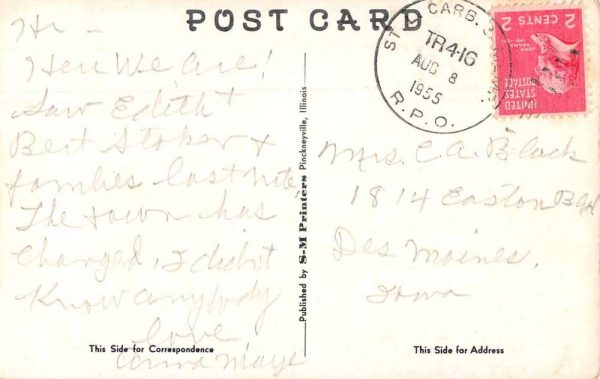 POST CARD
Hi -
Here We are!
Saw Edith +
Bert Stoker +
families last nite
The town has
changed, I didn't
know anybody
love
This Side for Correspondence
Published by S-M Printers Pinckneyville, Illinois
ST. CARB.
TR4-16
AUG 8
1955
R.P.O.
2 CENTS 2
UNITED
STATES
POSTAGE
Mrs. C. A. Black
1814 Easton Blvd
Des Moines,
Iowa
This Side for Address